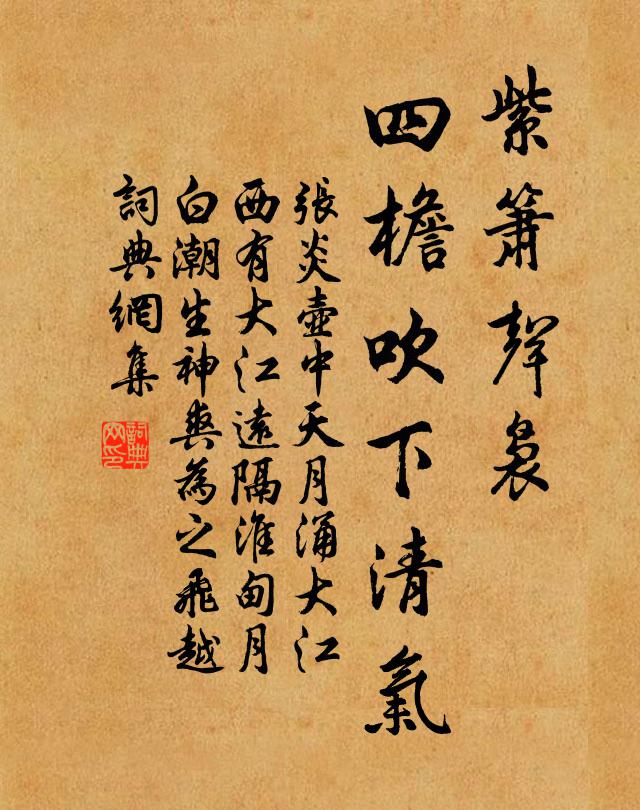 紫簫聲裊
四檐吹下清氣
張炎壺中天月涌大江
西有大江遠隔淮甸月
白潮生神爽為之飛越
詞典網集
詞典
网印